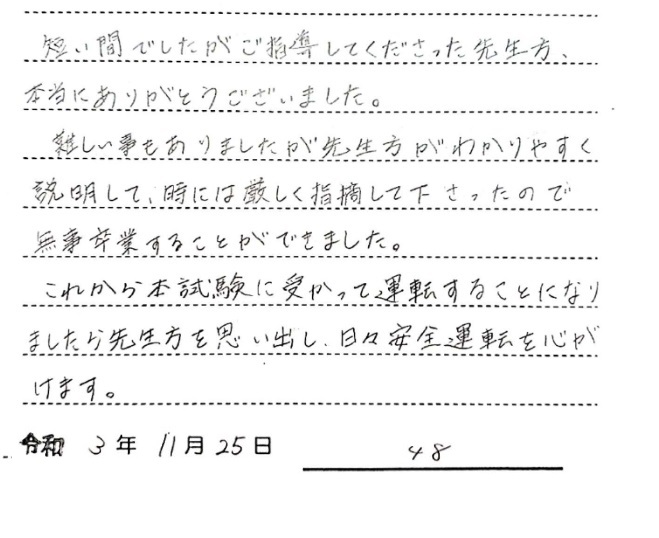 短い間でしたがご指導してくださった先生方、
本当にありがとうございました。
難しい事もありましたが先生方がわかりやすく
説明して、時には厳しく指摘して下さったので
無事卒業することができました。
これから本試験に受かって運転することになり
ましたら先生方を思い出し、日々安全運転を心が
けます。
令和 3年 11月25日 48